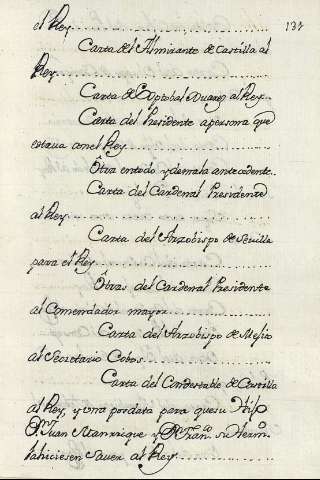 el Rey
133
Carta del Almirante de Castilla al
Rey
Carta de Xptobal Duarez al Rey
Carta del Presidente a persona que
estava con el Rey
Otra en todo y demala antecedente.
Carta del Cardenal Presidente
al Rey
Carta del Arzobispo de Sevilla
para el Rey
Otras del Cardenal Presidente
al Comendador mayor
Carta del Arzobispo de
al Secretario Cobos
Carta del Condestable de Castilla
al Rey, y una posdata para que su
Dn. Juan Manrrique y Dn. Franco. su hermo.
la hiciesen saver al Rey